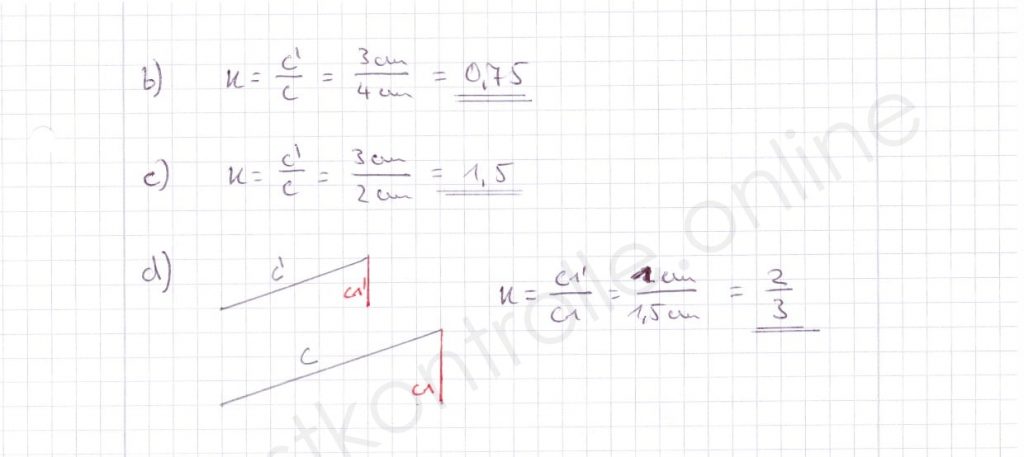 b) k = c'/c = 3cm/4cm = 0,75
c) k = c'/c = 3cm/2cm = 1,5
d) c' c1' k = c1'/c1 = 1cm/1,5cm = 2/3
c c1
stkontrolle.online